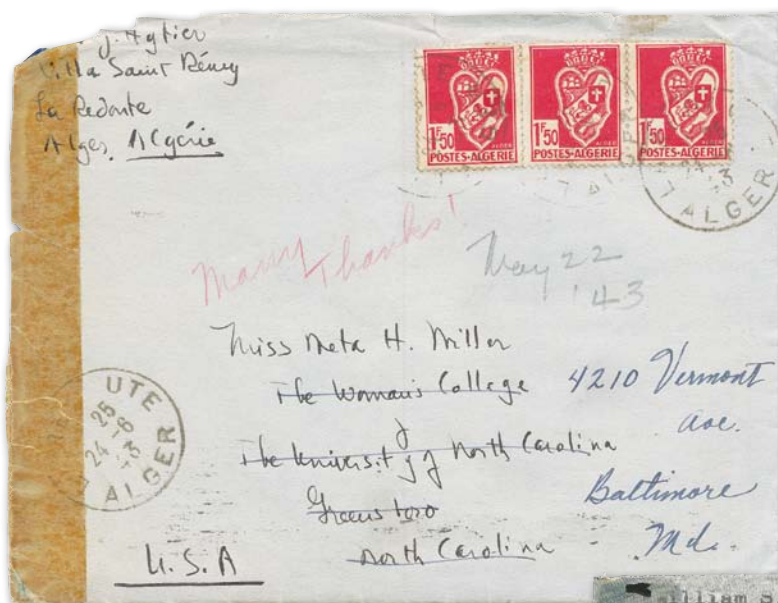 J. Hytier
Villa Saint Rémy
La Redoute
Alger, Algérie
1F50
POSTES-ALGERIE
1F50
POSTES-ALGERIE
1F50
POSTES-ALGERIE
ALGER
Many Thanks!
May 22
'43
Miss Meta H. Miller
The Woman's College
of
The University of North Carolina
Greensboro
North Carolina
U.S.A
4210 Vermont
Ave.
Baltimore
Md.
UTE
25
24 -6
ALGER
illiam S